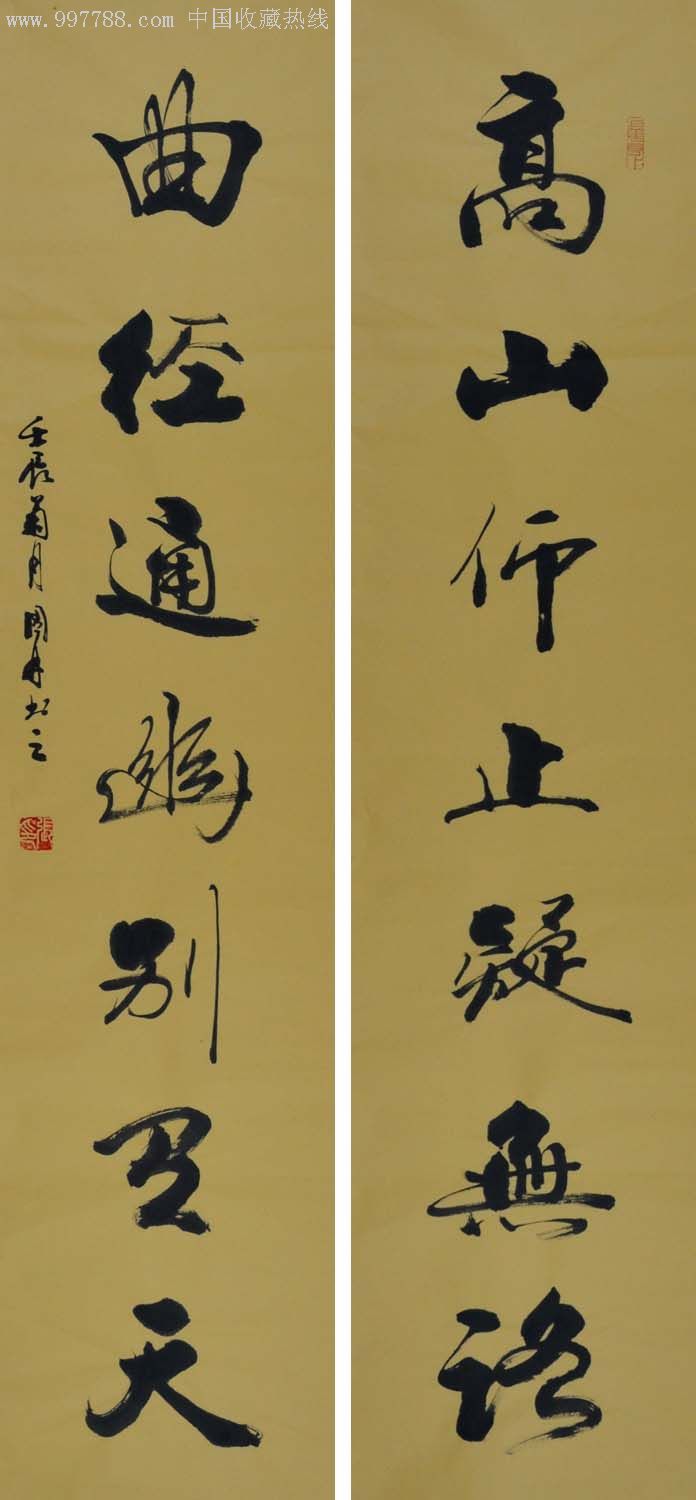 www.997788.com 中国收藏热线
高山仰止疑無路
曲径通幽别有天
壬辰菊月国林书之